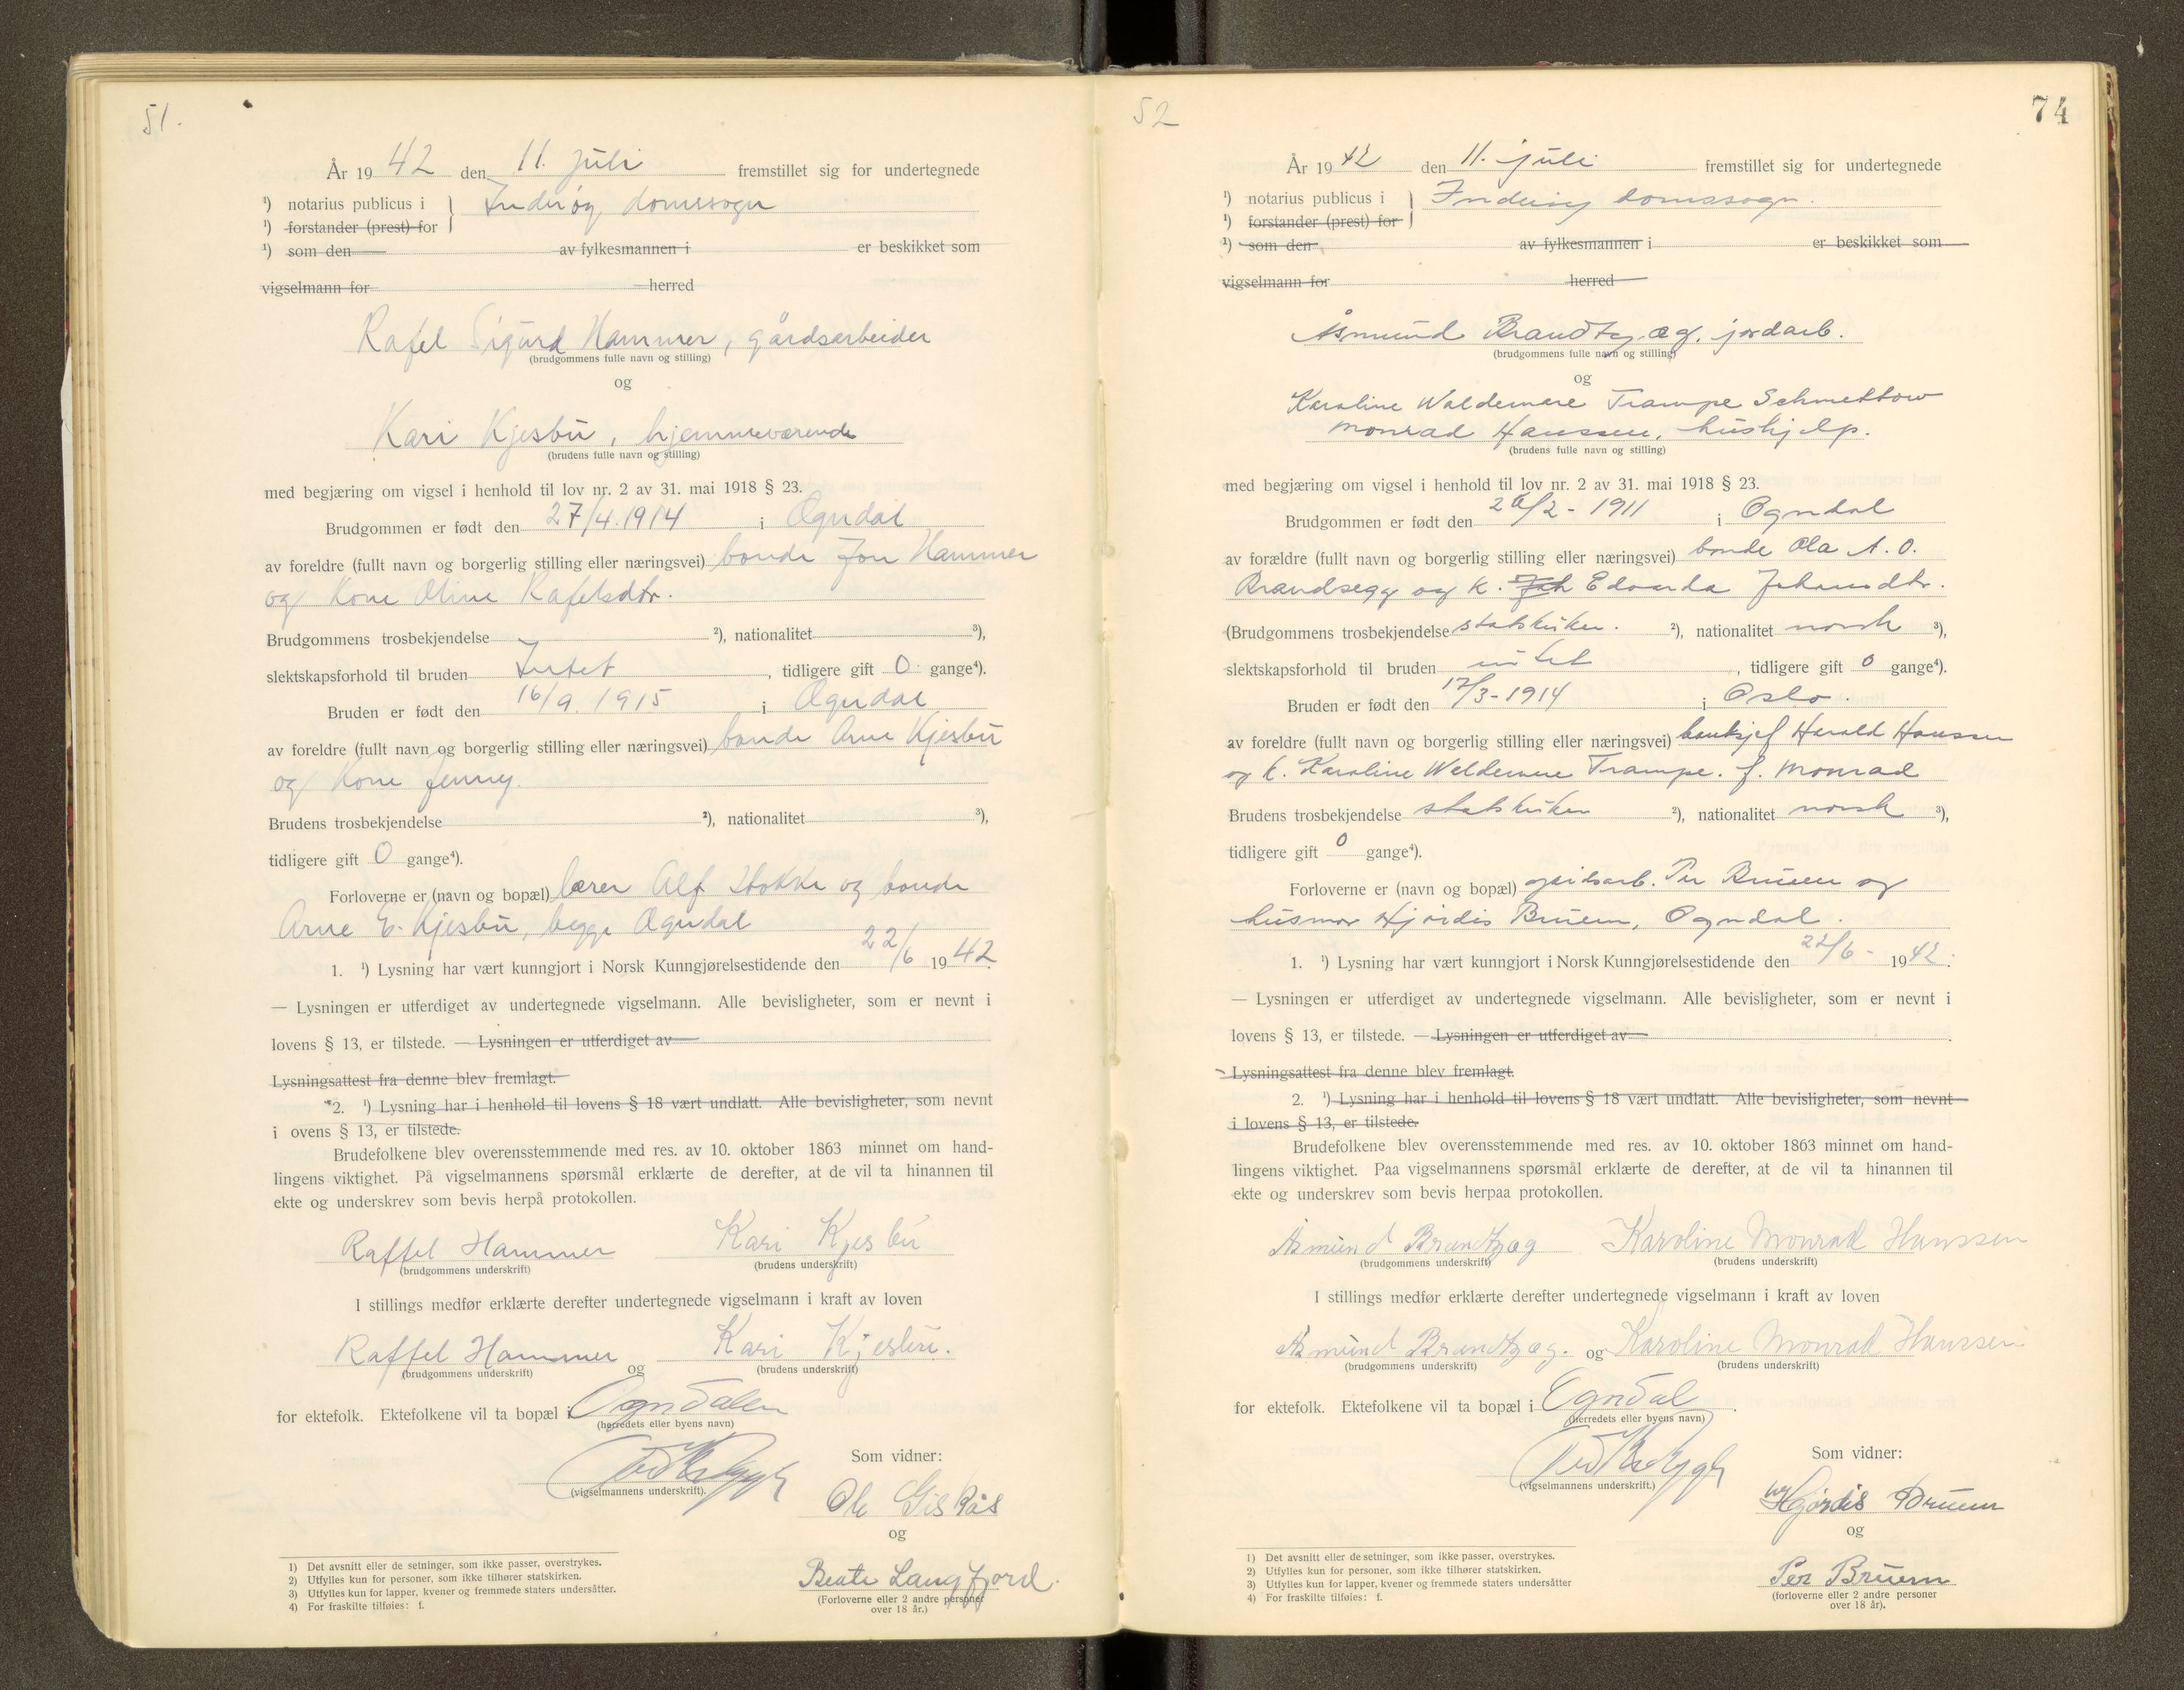 51.
År 1942 den 11. juli fremstillet sig for undertegnede
¹) notarius publicus i } Inderøy domssogn
¹) forstander (prest) for
¹) som den av fylkesmannen i er beskikket som
vigselmann for herred
Rafel Sigurd Hammer, gårdsarbeider
(brudgommens fulle navn og stilling)
og
Kari Kjesbu, hjemmeværende
(brudens fulle navn og stilling)
med begjæring om vigsel i henhold til lov nr. 2 av 31. mai 1918 § 23.
Brudgommen er født den 27/4.1914 i Ogndal
av foreldre (fullt navn og borgerlig stilling eller næringsvei) bonde Jon Hammer
og kone Oline Rafelsdtr.
Brudgommens trosbekjendelse ²), nationalitet ³),
slektskapsforhold til bruden Intet, tidligere gift 0 gange⁴).
Bruden er født den 16/9.1915 i Ogndal
av foreldre (fullt navn og borgerlig stilling eller næringsvei) bonde Arne Kjesbu
og kone Jenny.
Brudens trosbekjendelse ²), nationalitet ³),
tidligere gift 0 gange⁴).
Forloverne er (navn og bopæl) lærer Alf Stokke og bonde
Arne E. Kjesbu, begge Ogndal
1. ¹) Lysning har vært kunngjort i Norsk Kunngjørelsestidende den 22/6 1942.
— Lysningen er utferdiget av undertegnede vigselmann. Alle bevisligheter, som er nevnt i
lovens § 13, er tilstede. — Lysningen er utferdiget av
Lysningsattest fra denne blev fremlagt.
2. ¹) Lysning har i henhold til lovens § 18 vært undlatt. Alle bevisligheter, som nevnt
i ovens § 13, er tilstede.
Brudefolkene blev overensstemmende med res. av 10. oktober 1863 minnet om hand-
lingens viktighet. På vigselmannens spørsmål erklærte de derefter, at de vil ta hinannen til
ekte og underskrev som bevis herpå protokollen.
Raffel Hammer Kari Kjesbu
(brudgommens underskrift) (brudens underskrift)
I stillings medfør erklærte derefter undertegnede vigselmann i kraft av loven
Raffel Hammer og Kari Kjesbu.
(brudgommens underskrift) (brudens underskrift)
for ektefolk. Ektefolkene vil ta bopæl i Ogndalen
(herredets eller byens navn)
Som vidner:
(vigselmannens underskrift).
Ole Giskås
og
Beate Langfjord.
(Forloverne eller 2 andre personer
over 18 år.)
1) Det avsnitt eller de setninger, som ikke passer, overstrykes.
2) Utfylles kun for personer, som ikke tilhører statskirken.
3) Utfylles kun for lapper, kvener og fremmede staters undersåtter.
4) For fraskilte tilføies: f.
52
74
År 1942 den 11. juli fremstillet sig for undertegnede
¹) notarius publicus i } Inderøy domssogn.
¹) forstander (prest) for
¹) som den av fylkesmannen i er beskikket som
vigselmann for herred
Åsmund Brandtzæg, jordarb.
(brudgommens fulle navn og stilling)
og
Karoline Waldemare Trampe Schmettow
Monrad Hanssen, hushjelp.
(brudens fulle navn og stilling)
med begjæring om vigsel i henhold til lov nr. 2 av 31. mai 1918 § 23.
Brudgommen er født den /2-1911 i Ogndal
av forældre (fullt navn og borgerlig stilling eller næringsvei) bonde Ola A. O.
Brandsegg og k. Edvarda Johansdtr.
(Brudgommens trosbekjendelse statskirken. ²), nationalitet norsk ³),
slektskapsforhold til bruden intet, tidligere gift 0 gange⁴).
Bruden er født den 17/3-1914 i Oslo.
av foreldre (fullt navn og borgerlig stilling eller næringsvei) banksjef Harald Hanssen
og k. Karoline Weldemare Trampe. f. Monrad
Brudens trosbekjendelse statskirken ²), nationalitet norsk ³),
tidligere gift 0 gange⁴).
Forloverne er (navn og bopæl) Per Bruem og
husmor Hjørdis Bruem, Ogndal.
1. ¹) Lysning har vært kunngjort i Norsk Kunngjørelsestidende den 22/6- 1942.
— Lysningen er utferdiget av undertegnede vigselmann. Alle bevisligheter, som er nevnt i
lovens § 13, er tilstede. — Lysningen er utferdiget av
Lysningsattest fra denne blev fremlagt.
2. ¹) Lysning har i henhold til lovens § 18 vært undlatt. Alle bevisligheter, som nevnt
i lovens § 13, er tilstede.
Brudefolkene blev overensstemmende med res. av 10. oktober 1863 minnet om hand-
lingens viktighet. Paa vigselmannens spørsmål erklærte de derefter, at de vil ta hinannen til
ekte og underskrev som bevis herpaa protokollen.
Åsmund Brandtzæg Karoline Monrad Hanssen
(brudgommens underskrift) (brudens underskrift)
I stillings medfør erklærte derefter undertegnede vigselmann i kraft av loven
Åsmund Brandtzæg. og Karoline Monrad Hanssen
(brudgommens underskrift) (brudens underskrift)
for ektefolk. Ektefolkene vil ta bopæl i Ogndal.
(herredets eller byens navn)
Som vidner:
(vigselmannens underskrift.)
Hjørdis Bruem
og
Per Bruem
(forloverne eller 2 andre personer
over 18 år).
1) Det avsnitt eller de setninger, som ikke passer, overstrykes.
2) Utfylles kun for personer, som ikke tilhører statskirken.
3) Utfylles kun for lapper, kvener og fremmede staters undersåtter
4) For fraskilte tilføies: f.